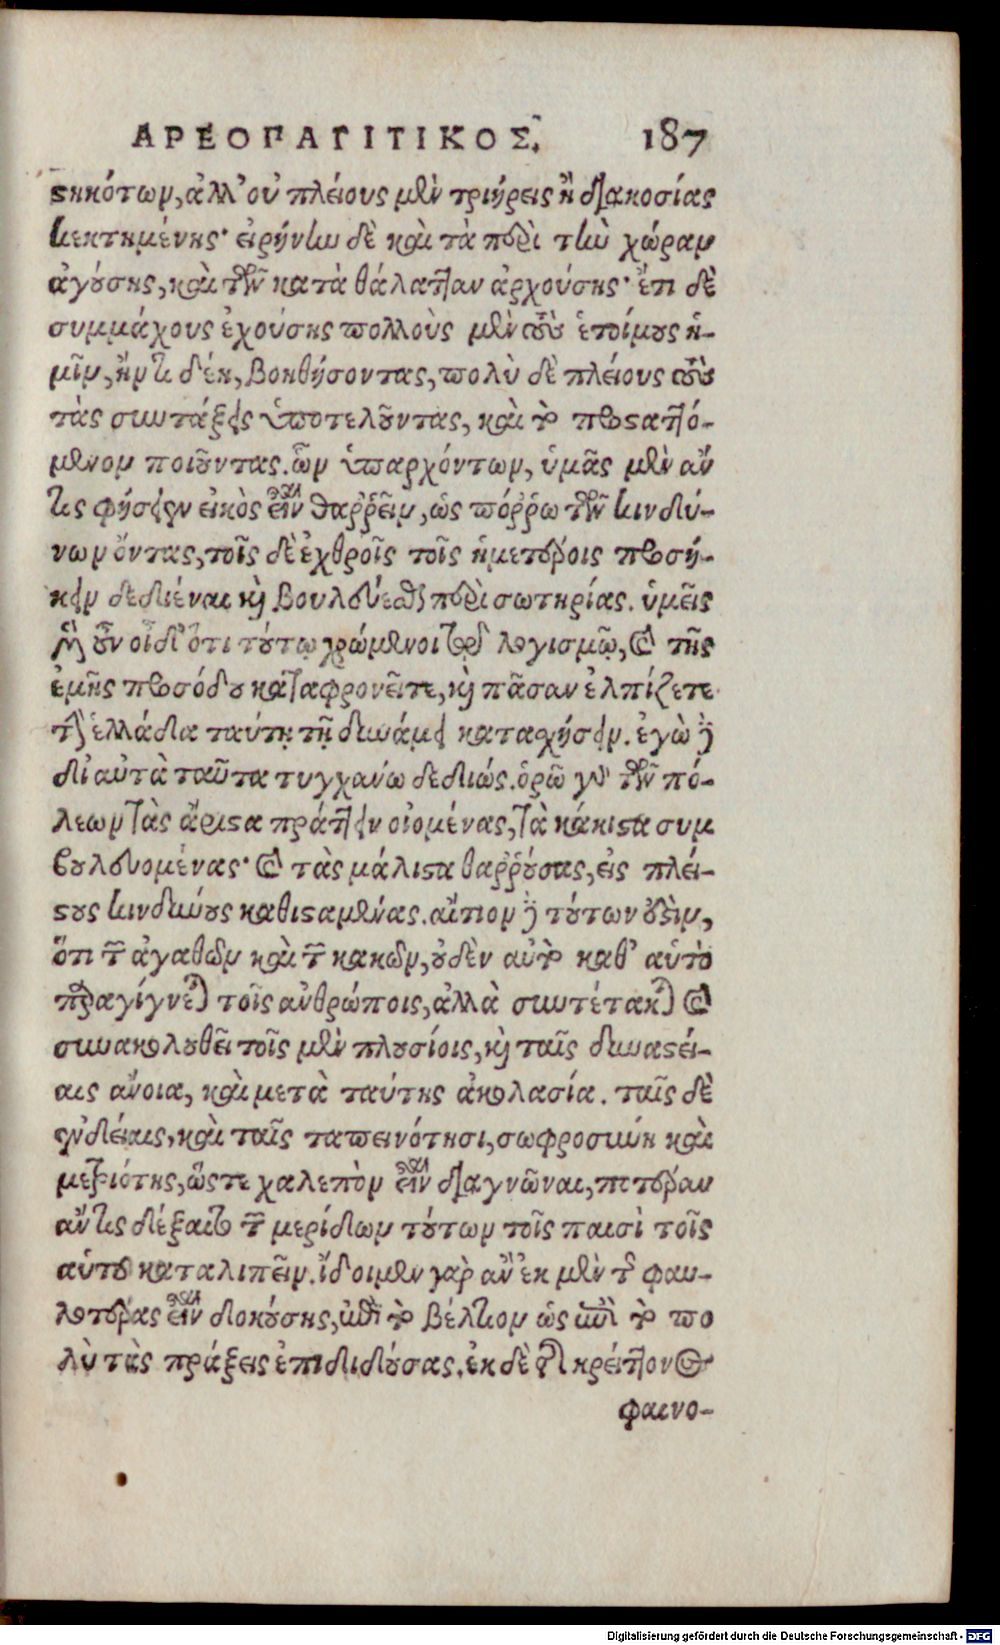 ΑΡΕΟΠΑΓΙΤΙΚΟΣ. 187
ϛηκότων, ἀλλ' οὐ πλείους μὲν τριήρεις ἢ διακοσίας
κεκτημένης· εἰρήνην δὲ καὶ τὰ περὶ τὴν χώραν
ἀγούσης, καὶ τῶν κατὰ θάλατταν ἀρχούσης· ἔτι δὲ
συμμάχους ἐχούσης πολλοὺς μὲν τοὺς ἑτοίμους ἡ-
μῖν, ἤν τι δέῃ, βοηθήσοντας, πολὺ δὲ πλείους τοὺς
τὰς συντάξεις ὑποτελοῦντας, καὶ τὸ προϛαττό-
μενον ποιοῦντας. ὧν ὑπαρχόντων, ὑμᾶς μὲν ἄν
τις φήσειεν εἰκὸς εἶναι θαρρεῖν, ὡς πόρρω τῶν κινδύ-
νων ὄντας, τοῖς δὲ ἐχθροῖς τοῖς ἡμετέροις προσή-
κειν δεδιέναι καὶ βουλεύεσθαι περὶ σωτηρίας. ὑμεῖς
μὲν οὖν οἶδ' ὅτι τούτῳ χρώμενοι τῷ λογισμῷ, καὶ τῆς
ἐμῆς προσόδου καταφρονεῖτε, καὶ πᾶσαν ἐλπίζετε
τὴν ἑλλάδα ταύτῃ τῇ δυνάμει κατασχήσειν. ἐγὼ δὲ
δι' αὐτὰ ταῦτα τυγχάνω δεδιώς. ὁρῶ γὰρ τῶν πό-
λεων τὰς ἄριϛα πράττειν οἰομένας, τὰ κάκιϛα συμ
βουλευομένας· καὶ τὰς μάλιϛα θαρρούσας, εἰς πλεί-
ϛους κινδύνους καθιϛαμένας. αἴτιον δὲ τούτων ὅτι,
ὅτι τῶν ἀγαθῶν καὶ τῶν κακῶν, οὐδὲν αὐτὸ καθ' αὑτὸ
παραγίγνεται τοῖς ἀνθρώποις, ἀλλὰ συντέτακται καὶ
συνακολουθεῖ τοῖς μὲν πλουσίοις, καὶ ταῖς δυναϛεί-
αις ἄνοια, καὶ μετὰ ταύτης ἀκολασία. ταῖς δὲ
ἐνδείαις, καὶ ταῖς ταπεινότησι, σωφροσύνη καὶ
μετριότης, ὥϛε χαλεπὸν εἶναι διαγνῶναι, ποτέραν
ἄν τις δέξαιτο τῶν μερίδων τούτων τοῖς παισὶ τοῖς
αὑτοῦ καταλιπεῖν. ἴδοιμεν γὰρ ἂν ἐκ μὲν τῆς φαυ-
λοτέρας εἶναι δοκούσης, ἐπὶ τὸ βέλτιον ὡς ἐπὶ τὸ πο
λὺ τὰς πράξεις ἐπιδιδούσας. ἐκ δὲ τῆς κρείττονος
φαινο-
Digitalisierung gefördert durch die Deutsche Forschungsgemeinschaft - DFG